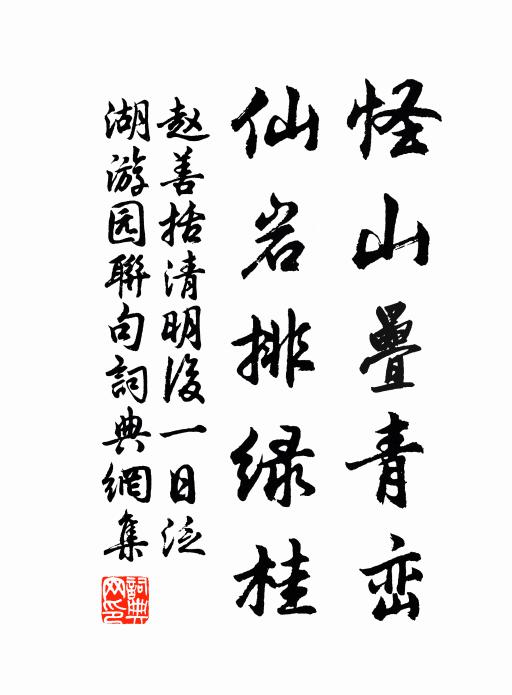 怪山疊青峦
仙岩排绿桂
赵善括清明後一日泛
湖游园聯句詞典網集
詞典
网印